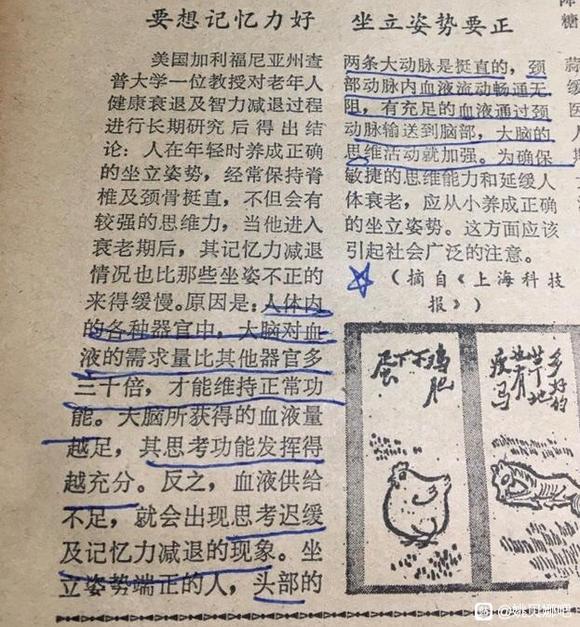 要想记忆力好 坐立姿势要正
美国加利福尼亚州查
普大学一位教授对老年人
健康衰退及智力减退过程
进行长期研究后得出结
论：人在年轻时养成正确
的坐立姿势，经常保持脊
椎及颈骨挺直，不但会有
较强的思维力，当他进入
衰老期后，其记忆力减退
情况也比那些坐姿不正的
来得缓慢。原因是：人体内
的各种器官中，大脑对血
液的需求量比其他器官多
三千倍，才能维持正常功
能。大脑所获得的血液量
越足，其思考功能发挥得
越充分。反之，血液供给
不足，就会出现思考迟缓
及记忆力减退的现象。坐
立姿势端正的人，头部的
两条大动脉是挺直的，颈
部动脉内血液流动畅通无
阻，有充足的血液通过颈
动脉输送到脑部，大脑的
思维活动就加强。为确保
敏捷的思维能力和延缓人
体衰老，应从小养成正确
的坐立姿势。这方面应该
引起社会广泛的注意。
（摘自《上海科技
报》）
肥鸡不下蛋
多好的
草地
没有
瘦马
糖